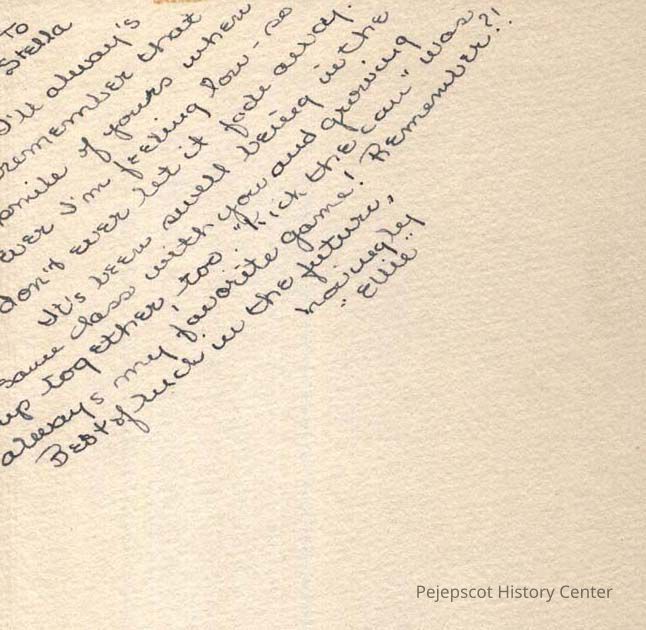 To
Stella
I'll always
remember that
smile of yours when
ever I'm feeling low - so
don't ever let it fade away.
It's been swell being in the
same class with you and growing
up together, too. "Kick the Can" was
always my favorite game! Remember?!
Best of luck in the future,
Lovingly
"Ellie"
Pejepscot History Center